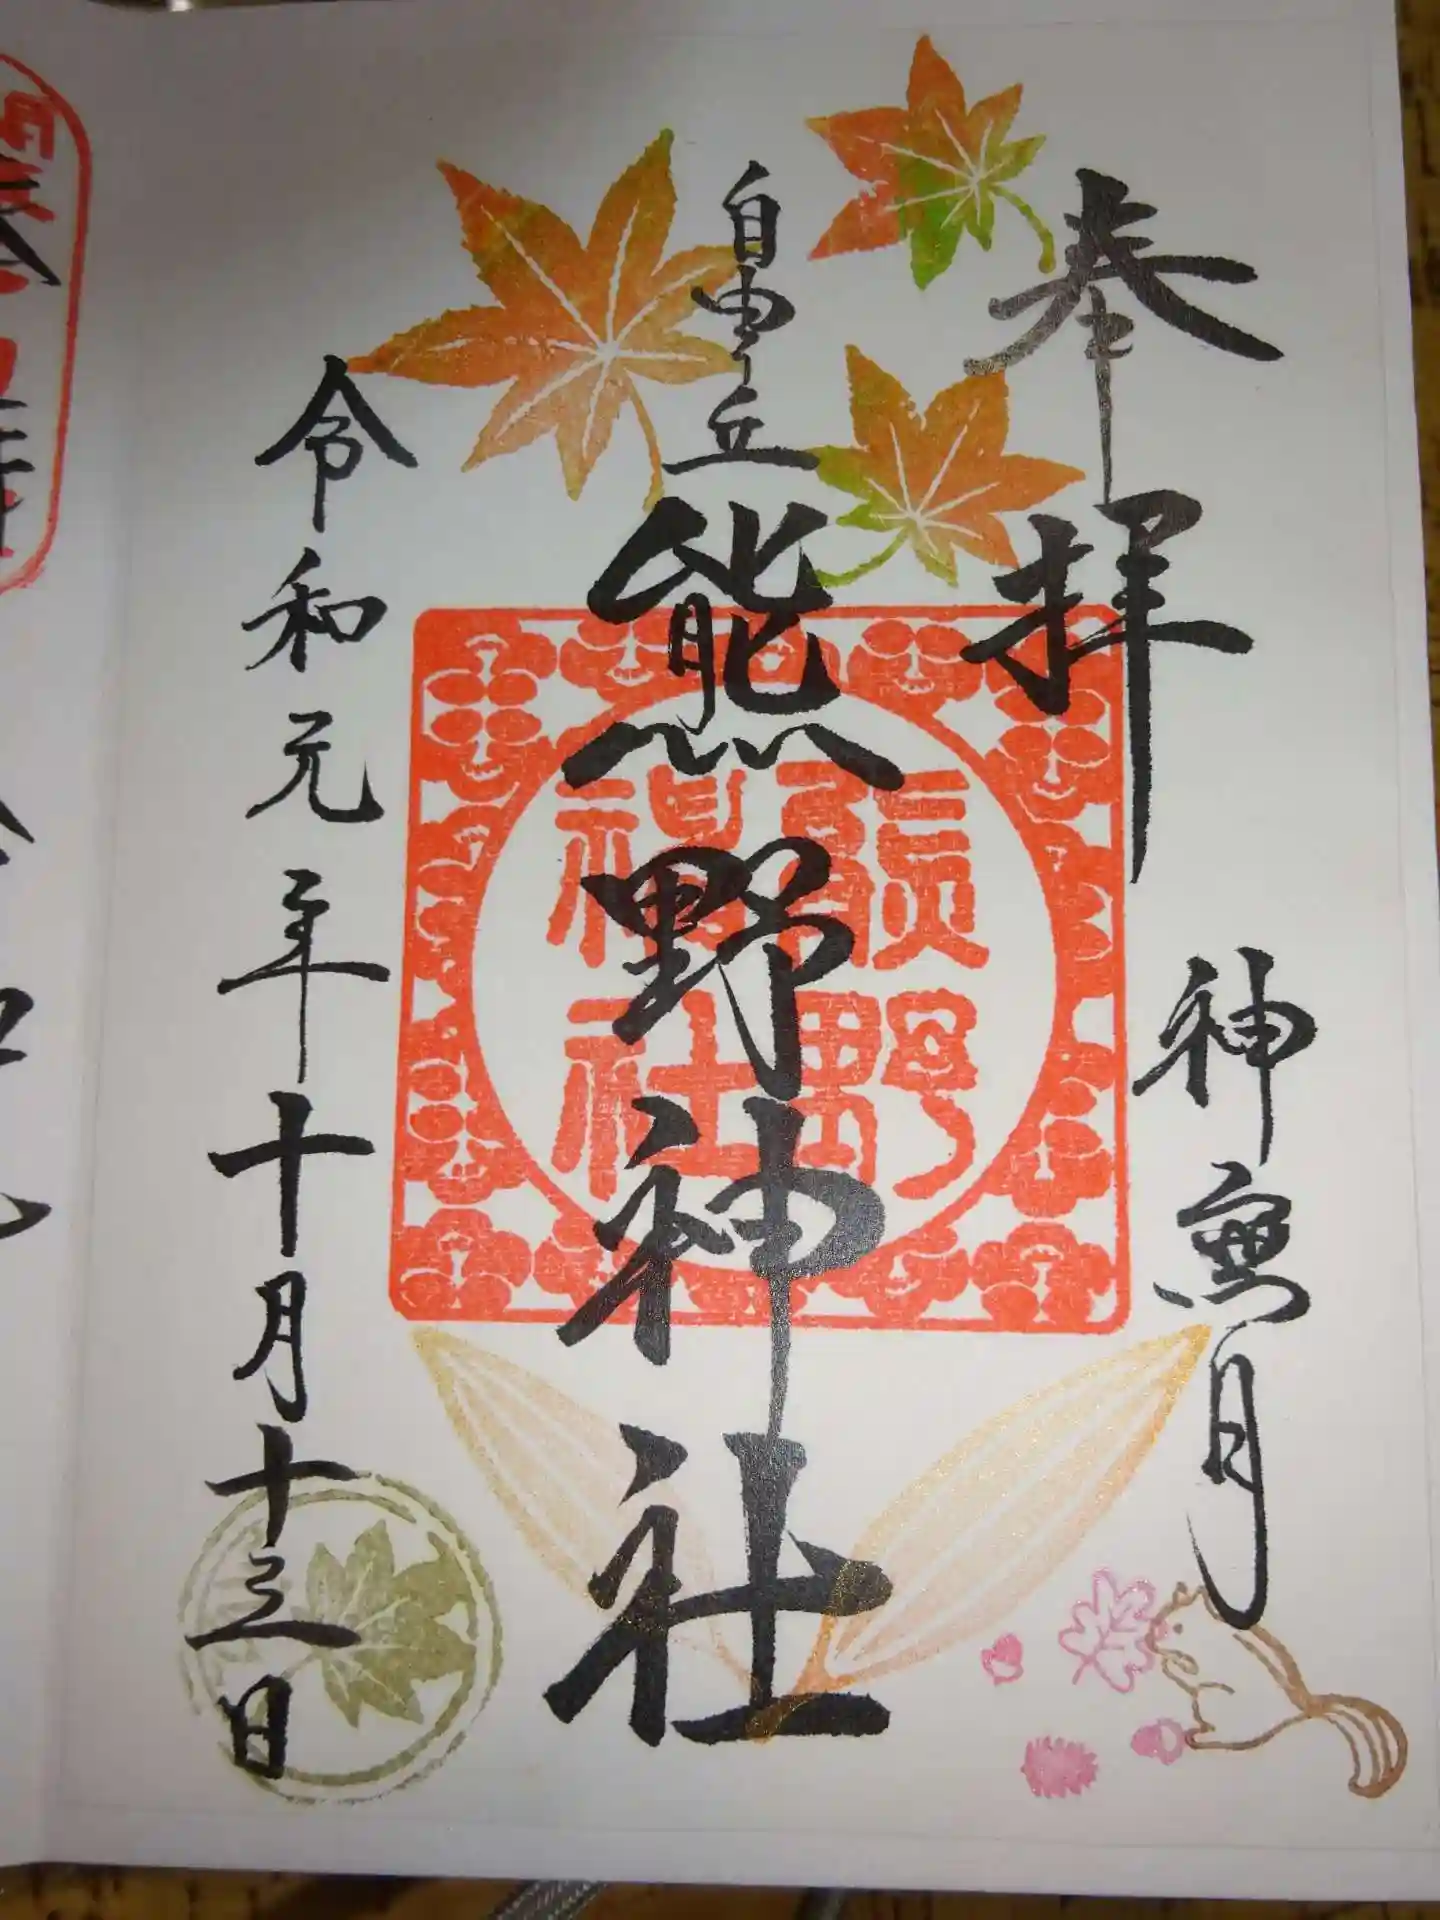 奉拝
神無月
自由が丘
熊野神社
熊野
神社
令和元年十月十三日